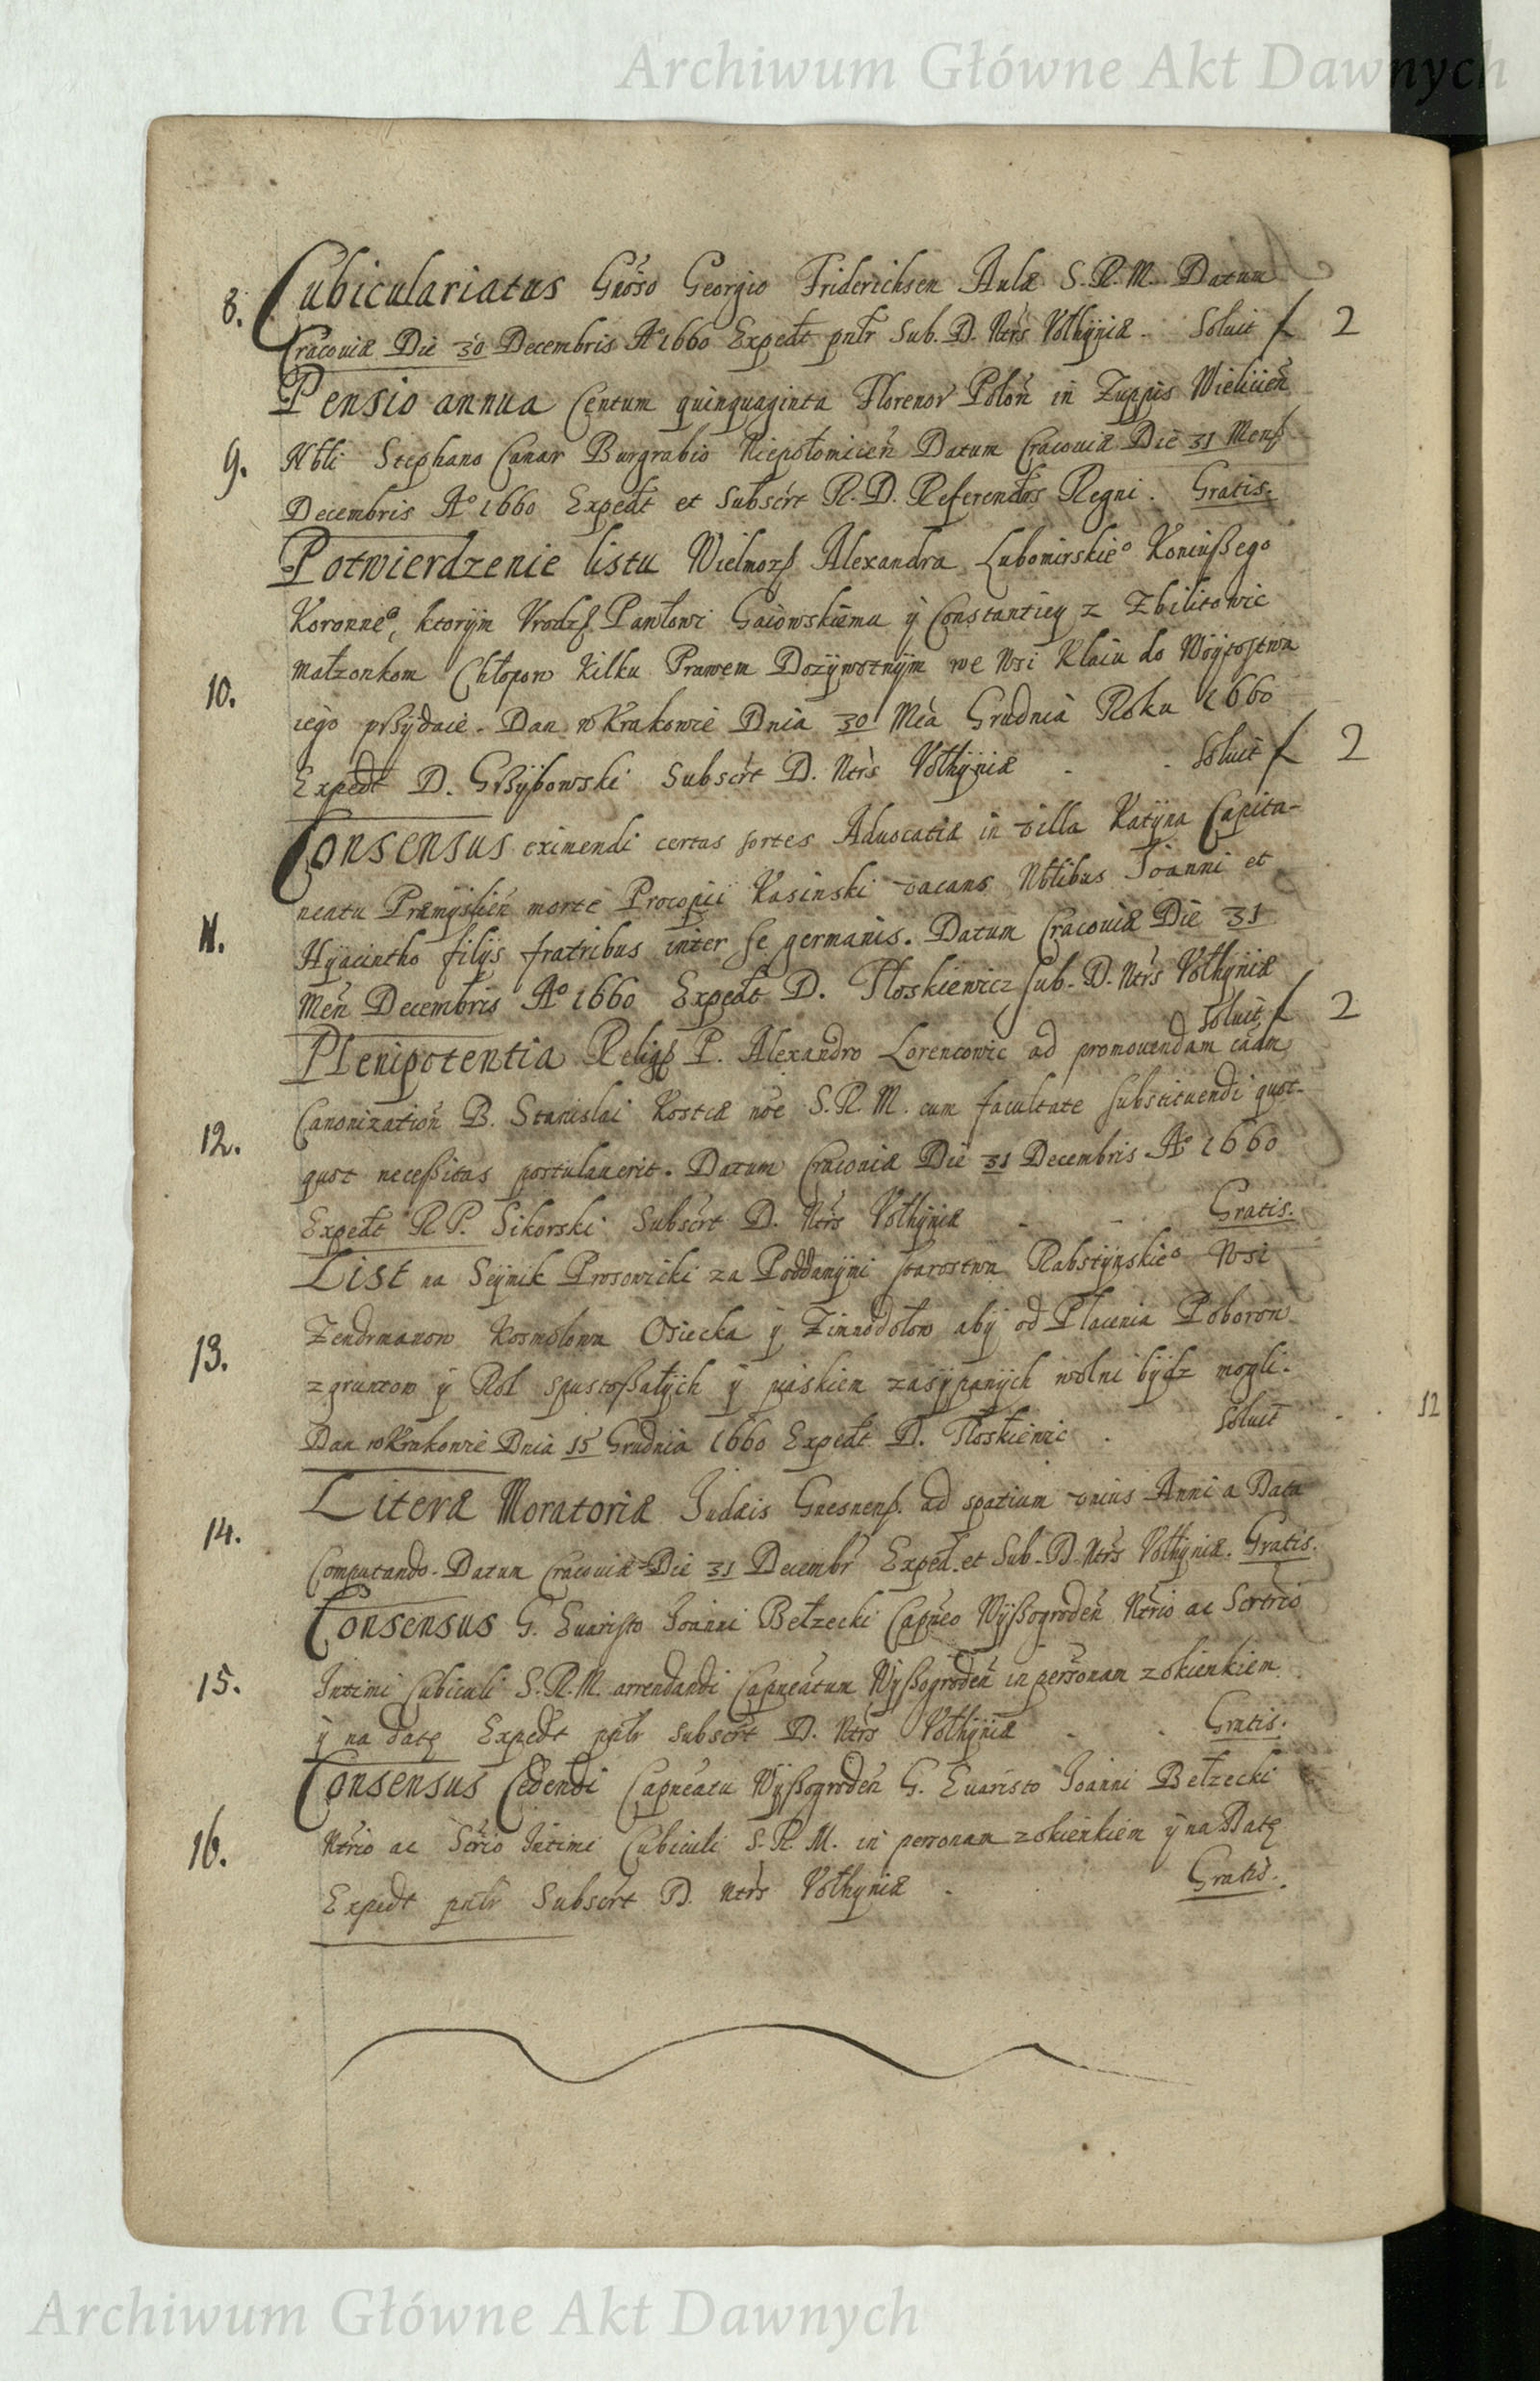 Archiwum Główne Akt Dawnych
8. Cubiculariatus Gnoso Georgio Friderichsen Aulæ S. R. M. Datum
Cracouiæ Die 30 Decembris Aº 1660 Expedt pntr Sub. D. Ntrs Volhÿniæ. Soluit f 2
Pensio annua Centum quinquaginta Florenor Polon in Zuppis Wieliciēn
9. Nbli Stephano Canar Burgrabio Niepołomiciēn Datum Cracouiæ Die 31 Mens
Decembris Aº 1660 Expedt et Subscrt R. D. Referendus Regni. Gratis.
Potwierdzenie listu Wielmoz Alexandra Lubomirskieº Koniußego
Koronneº, ktorÿm Vrodz Pawłowi Gaiowskiemu ÿ Constantieÿ z Zbilitowic
10. Małzonkom Chłopow kilku Prawem Dozÿwotnÿm we Wsi Kłaiu do Woÿtostwa
iego prßÿdaie. Dan w Krakowie Dnia 30 Mca Grudnia Roku 1660
Expedt D. Grßÿbowski Subscrt D. Ntrs Volhÿniæ - - Soluit f 2
Consensus eximendi certas sortes Aduocatiæ in villa Katÿna Capita-
neatu Præmÿsliēn morte Procopii Kasinski vacans Nblibus Joanni et
11. Hÿacintho filÿs fratribus inter se germanis. Datum Cracouiæ Die 31
Mēn Decembris Aº 1660 Expedt D. Płoskiewicz Sub. D. Ntrs Volhÿniæ
Soluit f 2
Plenipotentia Relig P. Alexandro Lorencowic ad promouendam cām
Canonizatiōn B. Stanislai Kostcæ nōe S. R. M. cum facultate substituendi quot-
12. quot neceßitas postulauerit. Datum Cracouiæ Die 31 Decembris Aº 1660
Expedt R. P. Sikorski Subscrt D. Ntrs Volhÿniæ - - Gratis.
List na Seÿmik Proßowicki za Poddanÿmi starostwa Rabstÿnskieº Wsi
Zendrmanow Kosmolowa Osiecka ÿ Zimnodołow abÿ od Płacenia Poborow
13. z gruntow ÿ Rol spustoßałÿch ÿ piaskiem zasÿpanÿch wolni bÿdz mogli.
Dan w Krakowie Dnia 15 Grudnia 1660 Expedt D. Płoskiewic - Soluit - - 12
Literæ Moratoriæ Judæis Gnesnens. ad spatium vnius Anni a Data
14. Computando. Datum Cracouiæ Die 31 Decembr Exped. et Sub. D. Ntrs Volhÿniæ. Gratis.
Consensus G. Euaristo Joanni Bełzecki Capneo Wÿßogrodēn Ntrio ac Scrtrio
15. Intimi Cubiculi S. R. M. arrendandi Capneatum Wÿßogrodēn in personam z okienkiem
ÿ na datę Expedt pntr Subscrt D. Ntrs Volhÿniæ - - Gratis.
Consensus Cedendi Capneatu Wÿßogrodēn G. Euaristo Joanni Bełzecki
16. Ntrio ac Scrio Intimi Cubiculi S. R. M. in personam z okienkiem ÿ na Datę
Expedt pntr Subscrt D. Ntrs Volhyniæ - Gratis.
Archiwum Główne Akt Dawnych